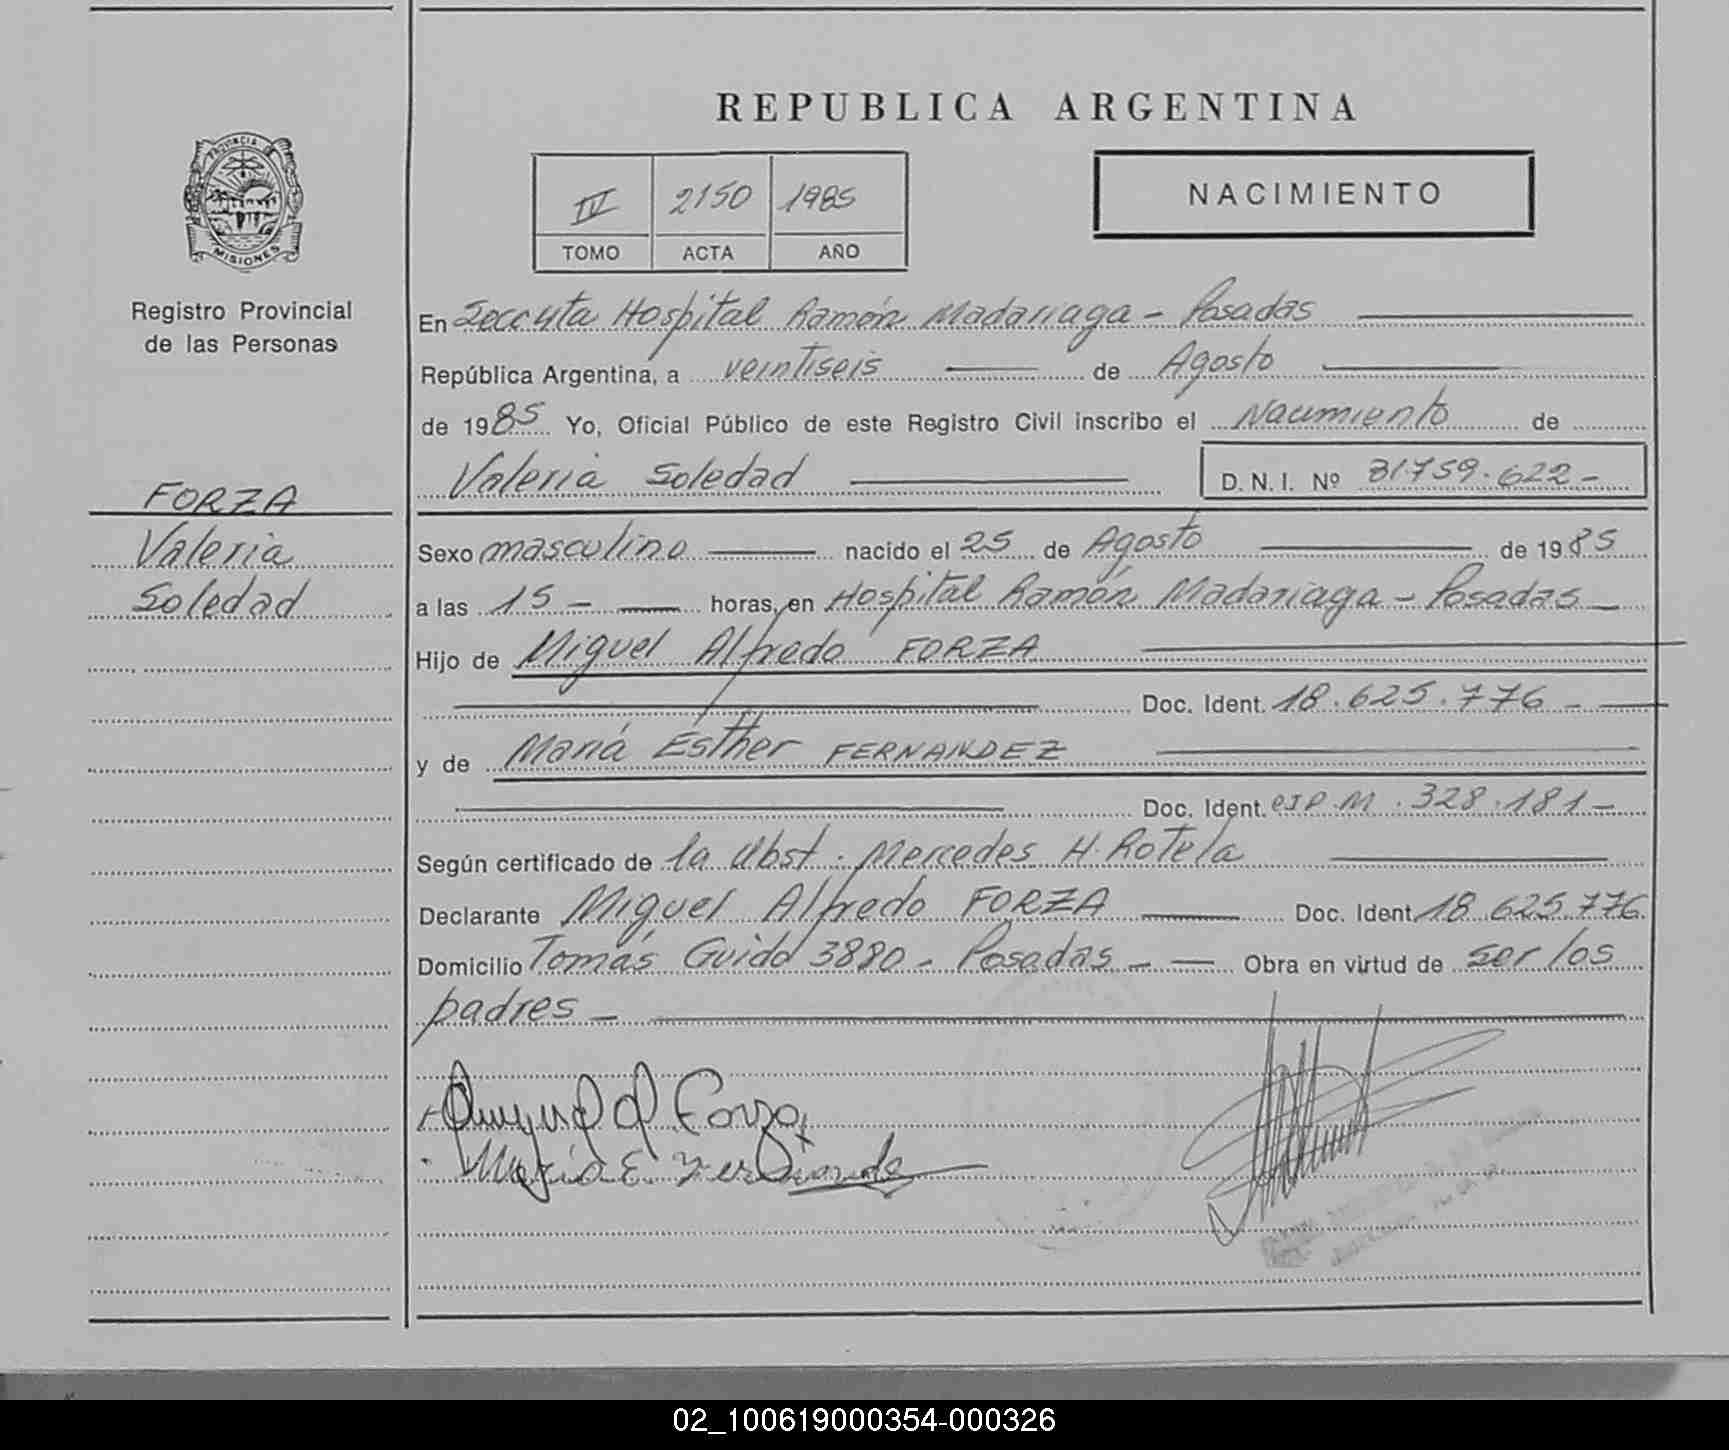 REPUBLICA ARGENTINA
PROVINCIA
MISIONES
IV 2150 1985
TOMO ACTA AÑO
NACIMIENTO
Registro Provincial
de las Personas
FORZA
Valeria
Soledad
En Hospital Ramón Madariaga - Posadas
República Argentina, a veintiseis de Agosto
de 1985 Yo, Oficial Público de este Registro Civil inscribo el Nacimiento de
Valeria Soledad D.N.I. Nº 31.759.622-
Sexo masculino nacido el 25 de Agosto de 1985
a las 15 - horas, en Hospital Ramón Madariaga - Posadas
Hijo de Miguel Alfredo FORZA
Doc. Ident. 18.625.776 -
y de María Esther FERNANDEZ
Doc. Ident. CIP.M. 328.181-
Según certificado de la Obst. Mercedes H. Rotela
Declarante Miguel Alfredo FORZA Doc. Ident. 18.625.776
Domicilio Tomás Guido 3880 - Posadas - Obra en virtud de ser los
padres -
Forza
María E. Fernande
02_100619000354-000326